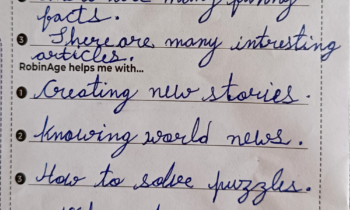 many funny
facts.
3 There are many intresting
articles.
RobinAge helps me with...
1 Creating new stories.
2 Knowing world news.
3 How to solve puzzles.